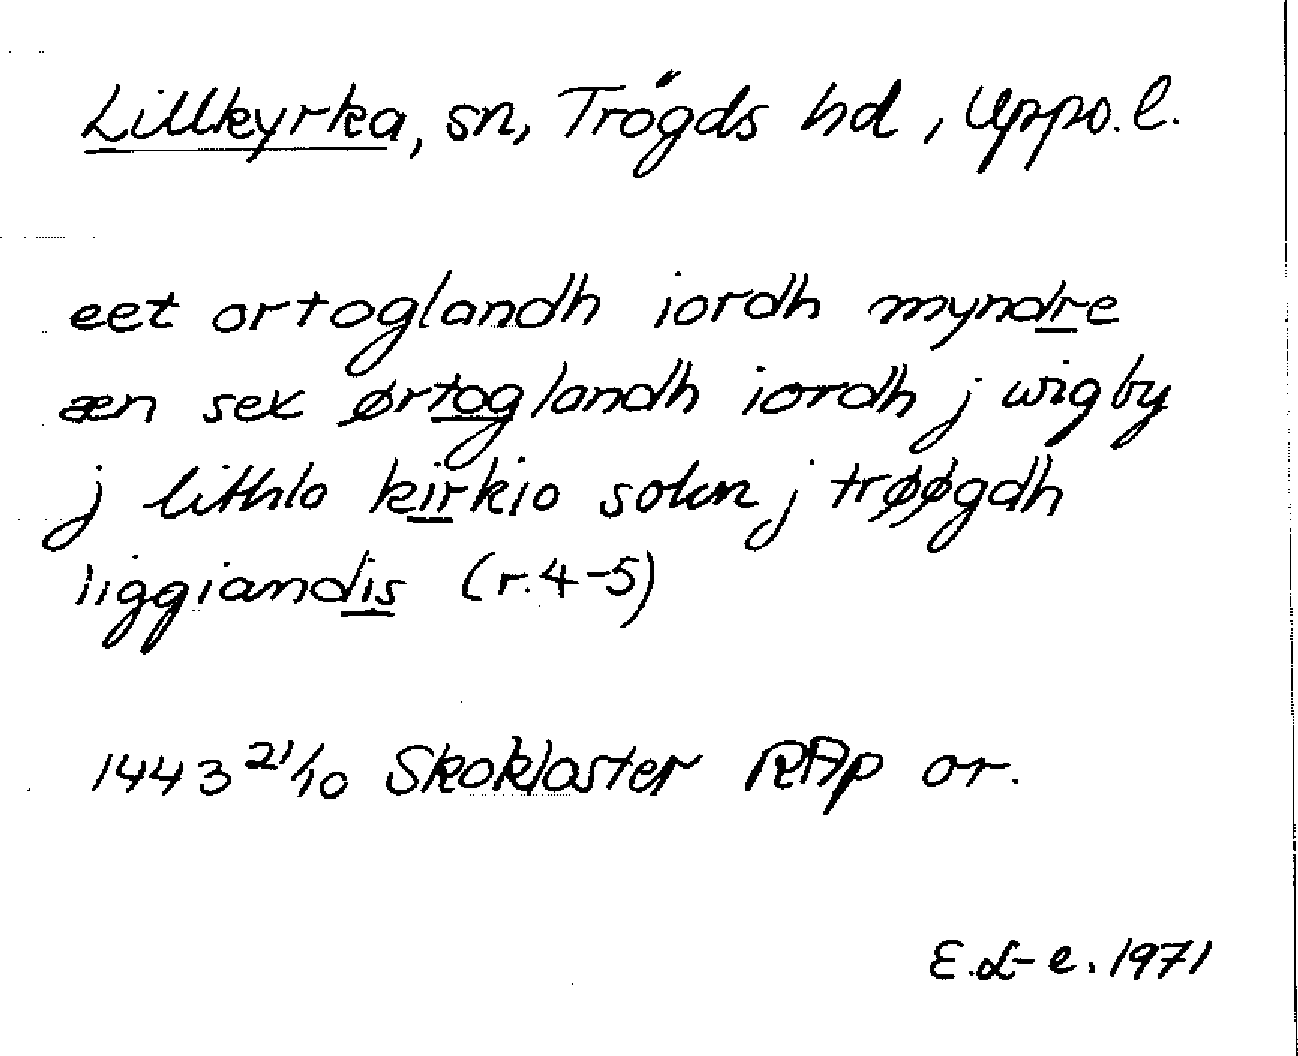 Lillkyrka, sn, Trögds hd, Uppo. l.
eet ortoglandh iordh myndre
æn sex ørtoglandh iordh j wigby
j lithlo kirkio sokn j trøøgdh
liggiandis (r. 4-5)
1443 21/10 Skokloster RAp or.
E. L-e. 1971